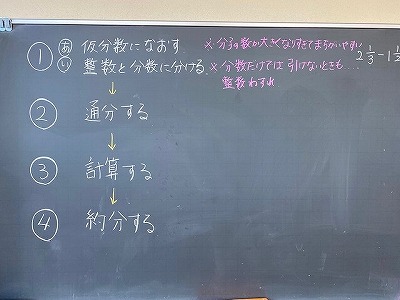 ① あ 仮分数になおす ※分子の数が大きくなりすぎてまちがいやすい
い 整数と分数に分ける ※分数だけでは引けないときも
整数わすれ
2 1/3 - 1 1/2
↓
② 通分する
↓
③ 計算する
↓
④ 約分する